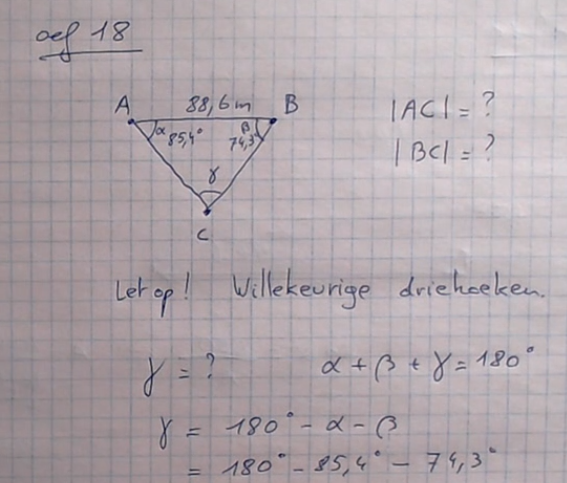 oef 18
A 88,6 m B
α 85,4° β 74,3°
γ
C
|AC| = ?
|BC| = ?
Let op! Willekeurige driehoeken.
γ = ? α + β + γ = 180°
γ = 180° - α - β
= 180° - 85,4° - 74,3°